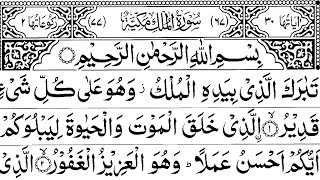 اٰيَاتُهَا ٣٠ (٦٧) سُوْرَةُ الْمُلْكِ مَكِّيَّةٌ (٧٧) رُكُوْعَاتُهَا ٢
بِسْمِ اللّٰهِ الرَّحْمٰنِ الرَّحِيْمِ
تَبٰرَكَ الَّذِيْ بِيَدِهِ الْمُلْكُ ز وَهُوَ عَلٰى كُلِّ شَيْءٍ
قَدِيْرُ ۨ ۙ﴿١﴾ الَّذِيْ خَلَقَ الْمَوْتَ وَالْحَيٰوةَ لِيَبْلُوَكُمْ
اَيُّكُمْ اَحْسَنُ عَمَلًا ؕ وَهُوَ الْعَزِيْزُ الْغَفُوْرُ ۙ﴿٢﴾ الَّذِيْ